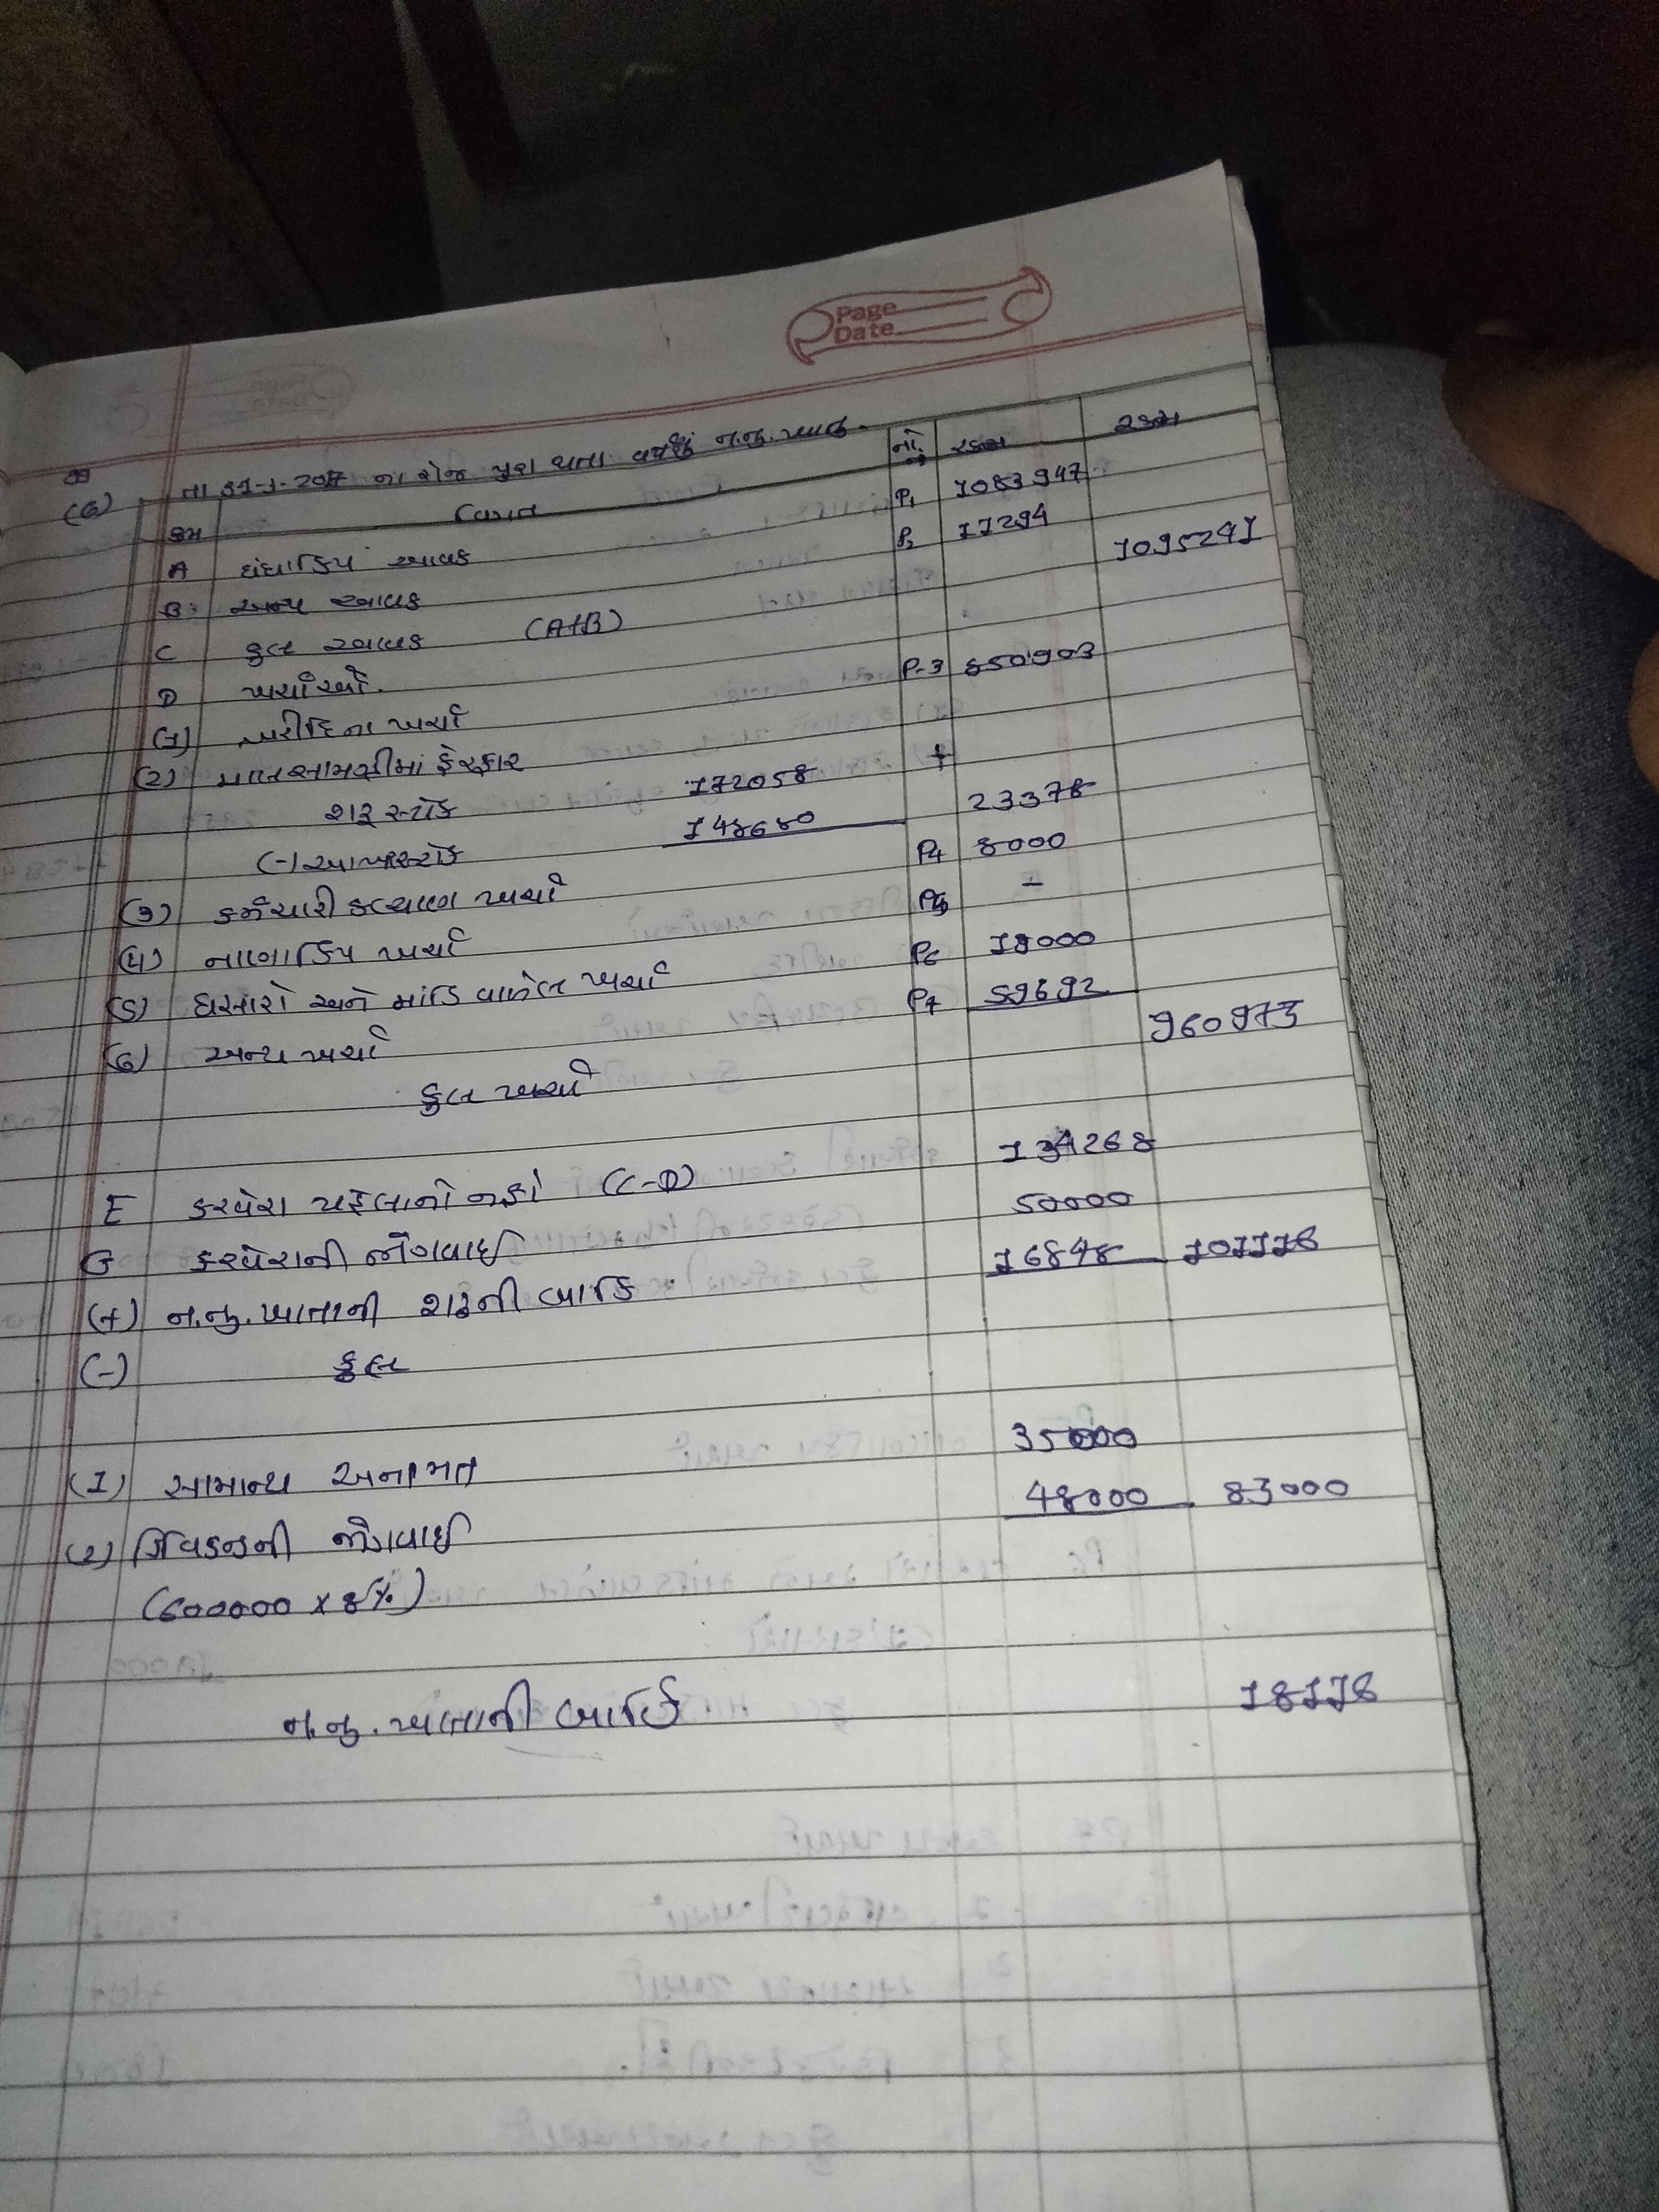 Page
Date
(6) તા 31-3-2017 ના રોજ પુરા થતા વર્ષનું ન.નુ. ખાતુ.
ક્રમ વિગત નોં. રકમ રકમ
A ધંધાકિય આવક P1 1083947
B: અન્ય આવક P2 11294
C કુલ આવક (A+B) 1095241
D ખર્ચાઓ.
(1) ખરીદિના ખર્ચા P-3 850903
(2) માલસામગ્રીમાં ફેરફાર +
શરૂ સ્ટોક 172058
(-) આખર સ્ટોક 148680 23378
(3) કર્મચારી કલ્યાણ ખર્ચા P4 8000
(4) નાણાકિય ખર્ચા P5 –
(5) ઘસારો અને માંડિ વાળેલ ખર્ચા P6 19000
(6) અન્ય ખર્ચા P7 59692
કુલ ખર્ચા 960973
E કરવેરા પહેલાનો નફો (C-D) 134268
G કરવેરાની જોગવાઈ 50000
(+) ન.નુ. ખાતાની શરૂની બાકિ 16848 101118
(-) કુલ
(1) સામાન્ય અનામત 35000
(2) ડિવિડન્ડની જોગવાઈ 48000 83000
(600000 x 8%)
ન.નુ. ખાતાની બાકિ 18118